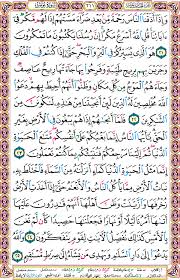 وَإِذَآ أَذَقْنَا ٱلنَّاسَ رَحْمَةً مِّنۢ بَعْدِ ضَرَّآءَ مَسَّتْهُمْ إِذَا لَهُم مَّكْرٌ فِىٓ
ءَايَاتِنَا قُلِ ٱللَّهُ أَسْرَعُ مَكْرًا إِنَّ رُسُلَنَا يَكْتُبُونَ مَا تَمْكُرُونَ
٢١ هُوَ ٱلَّذِى يُسَيِّرُكُمْ فِى ٱلْبَرِّ وَٱلْبَحْرِ حَتَّىٰٓ إِذَا كُنتُمْ فِى ٱلْفُلْكِ
وَجَرَيْنَ بِهِم بِرِيحٍ طَيِّبَةٍ وَفَرِحُوا۟ بِهَا جَآءَتْهَا رِيحٌ عَاصِفٌ
وَجَآءَهُمُ ٱلْمَوْجُ مِن كُلِّ مَكَانٍ وَظَنُّوٓا۟ أَنَّهُمْ أُحِيطَ بِهِمْ دَعَوُا۟
ٱللَّهَ مُخْلِصِينَ لَهُ ٱلدِّينَ لَئِنْ أَنجَيْتَنَا مِنْ هَٰذِهِۦ لَنَكُونَنَّ مِنَ
ٱلشَّٰكِرِينَ ٢٢ فَلَمَّآ أَنجَىٰهُمْ إِذَا هُمْ يَبْغُونَ فِى ٱلْأَرْضِ بِغَيْرِ ٱلْحَقِّ
يَٰٓأَيُّهَا ٱلنَّاسُ إِنَّمَا بَغْيُكُمْ عَلَىٰٓ أَنفُسِكُم مَّتَٰعَ ٱلْحَيَوٰةِ
ٱلدُّنْيَا ثُمَّ إِلَيْنَا مَرْجِعُكُمْ فَنُنَبِّئُكُم بِمَا كُنتُمْ تَعْمَلُونَ ٢٣
إِنَّمَا مَثَلُ ٱلْحَيَوٰةِ ٱلدُّنْيَا كَمَآءٍ أَنزَلْنَٰهُ مِنَ ٱلسَّمَآءِ فَٱخْتَلَطَ بِهِۦ
نَبَاتُ ٱلْأَرْضِ مِمَّا يَأْكُلُ ٱلنَّاسُ وَٱلْأَنْعَٰمُ حَتَّىٰٓ إِذَآ أَخَذَتِ ٱلْأَرْضُ
زُخْرُفَهَا وَٱزَّيَّنَتْ وَظَنَّ أَهْلُهَآ أَنَّهُمْ قَٰدِرُونَ عَلَيْهَآ أَتَىٰهَآ
أَمْرُنَا لَيْلًا أَوْ نَهَارًا فَجَعَلْنَٰهَا حَصِيدًا كَأَن لَّمْ تَغْنَ
بِٱلْأَمْسِ كَذَٰلِكَ نُفَصِّلُ ٱلْءَايَٰتِ لِقَوْمٍ يَتَفَكَّرُونَ ٢٤